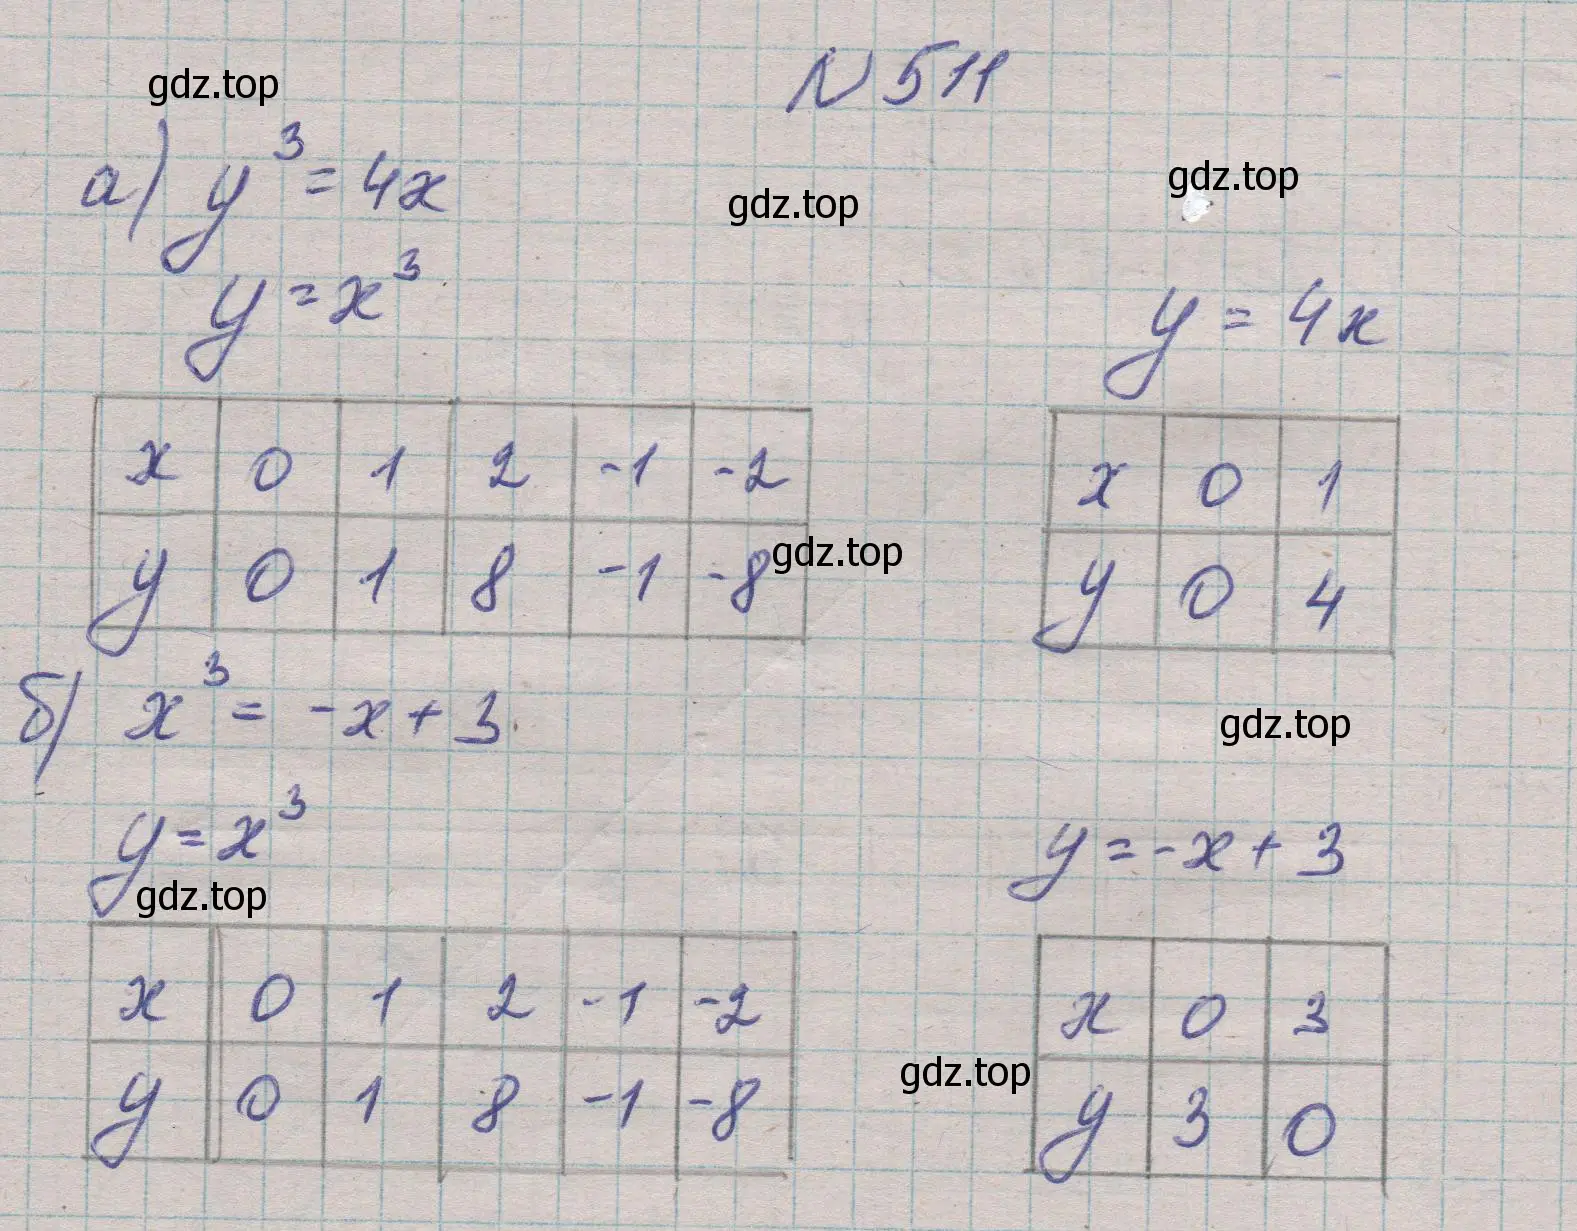 N 511
gdz.top
а) y³ = 4x
gdz.top
gdz.top
y = x³
y = 4x
x 0 1 2 -1 -2
y 0 1 8 -1 -8
gdz.top
x 0 1
y 0 4
б) x³ = -x + 3
gdz.top
y = x³
y = -x + 3
gdz.top
x 0 1 2 -1 -2
y 0 1 8 -1 -8
gdz.top
x 0 3
y 3 0